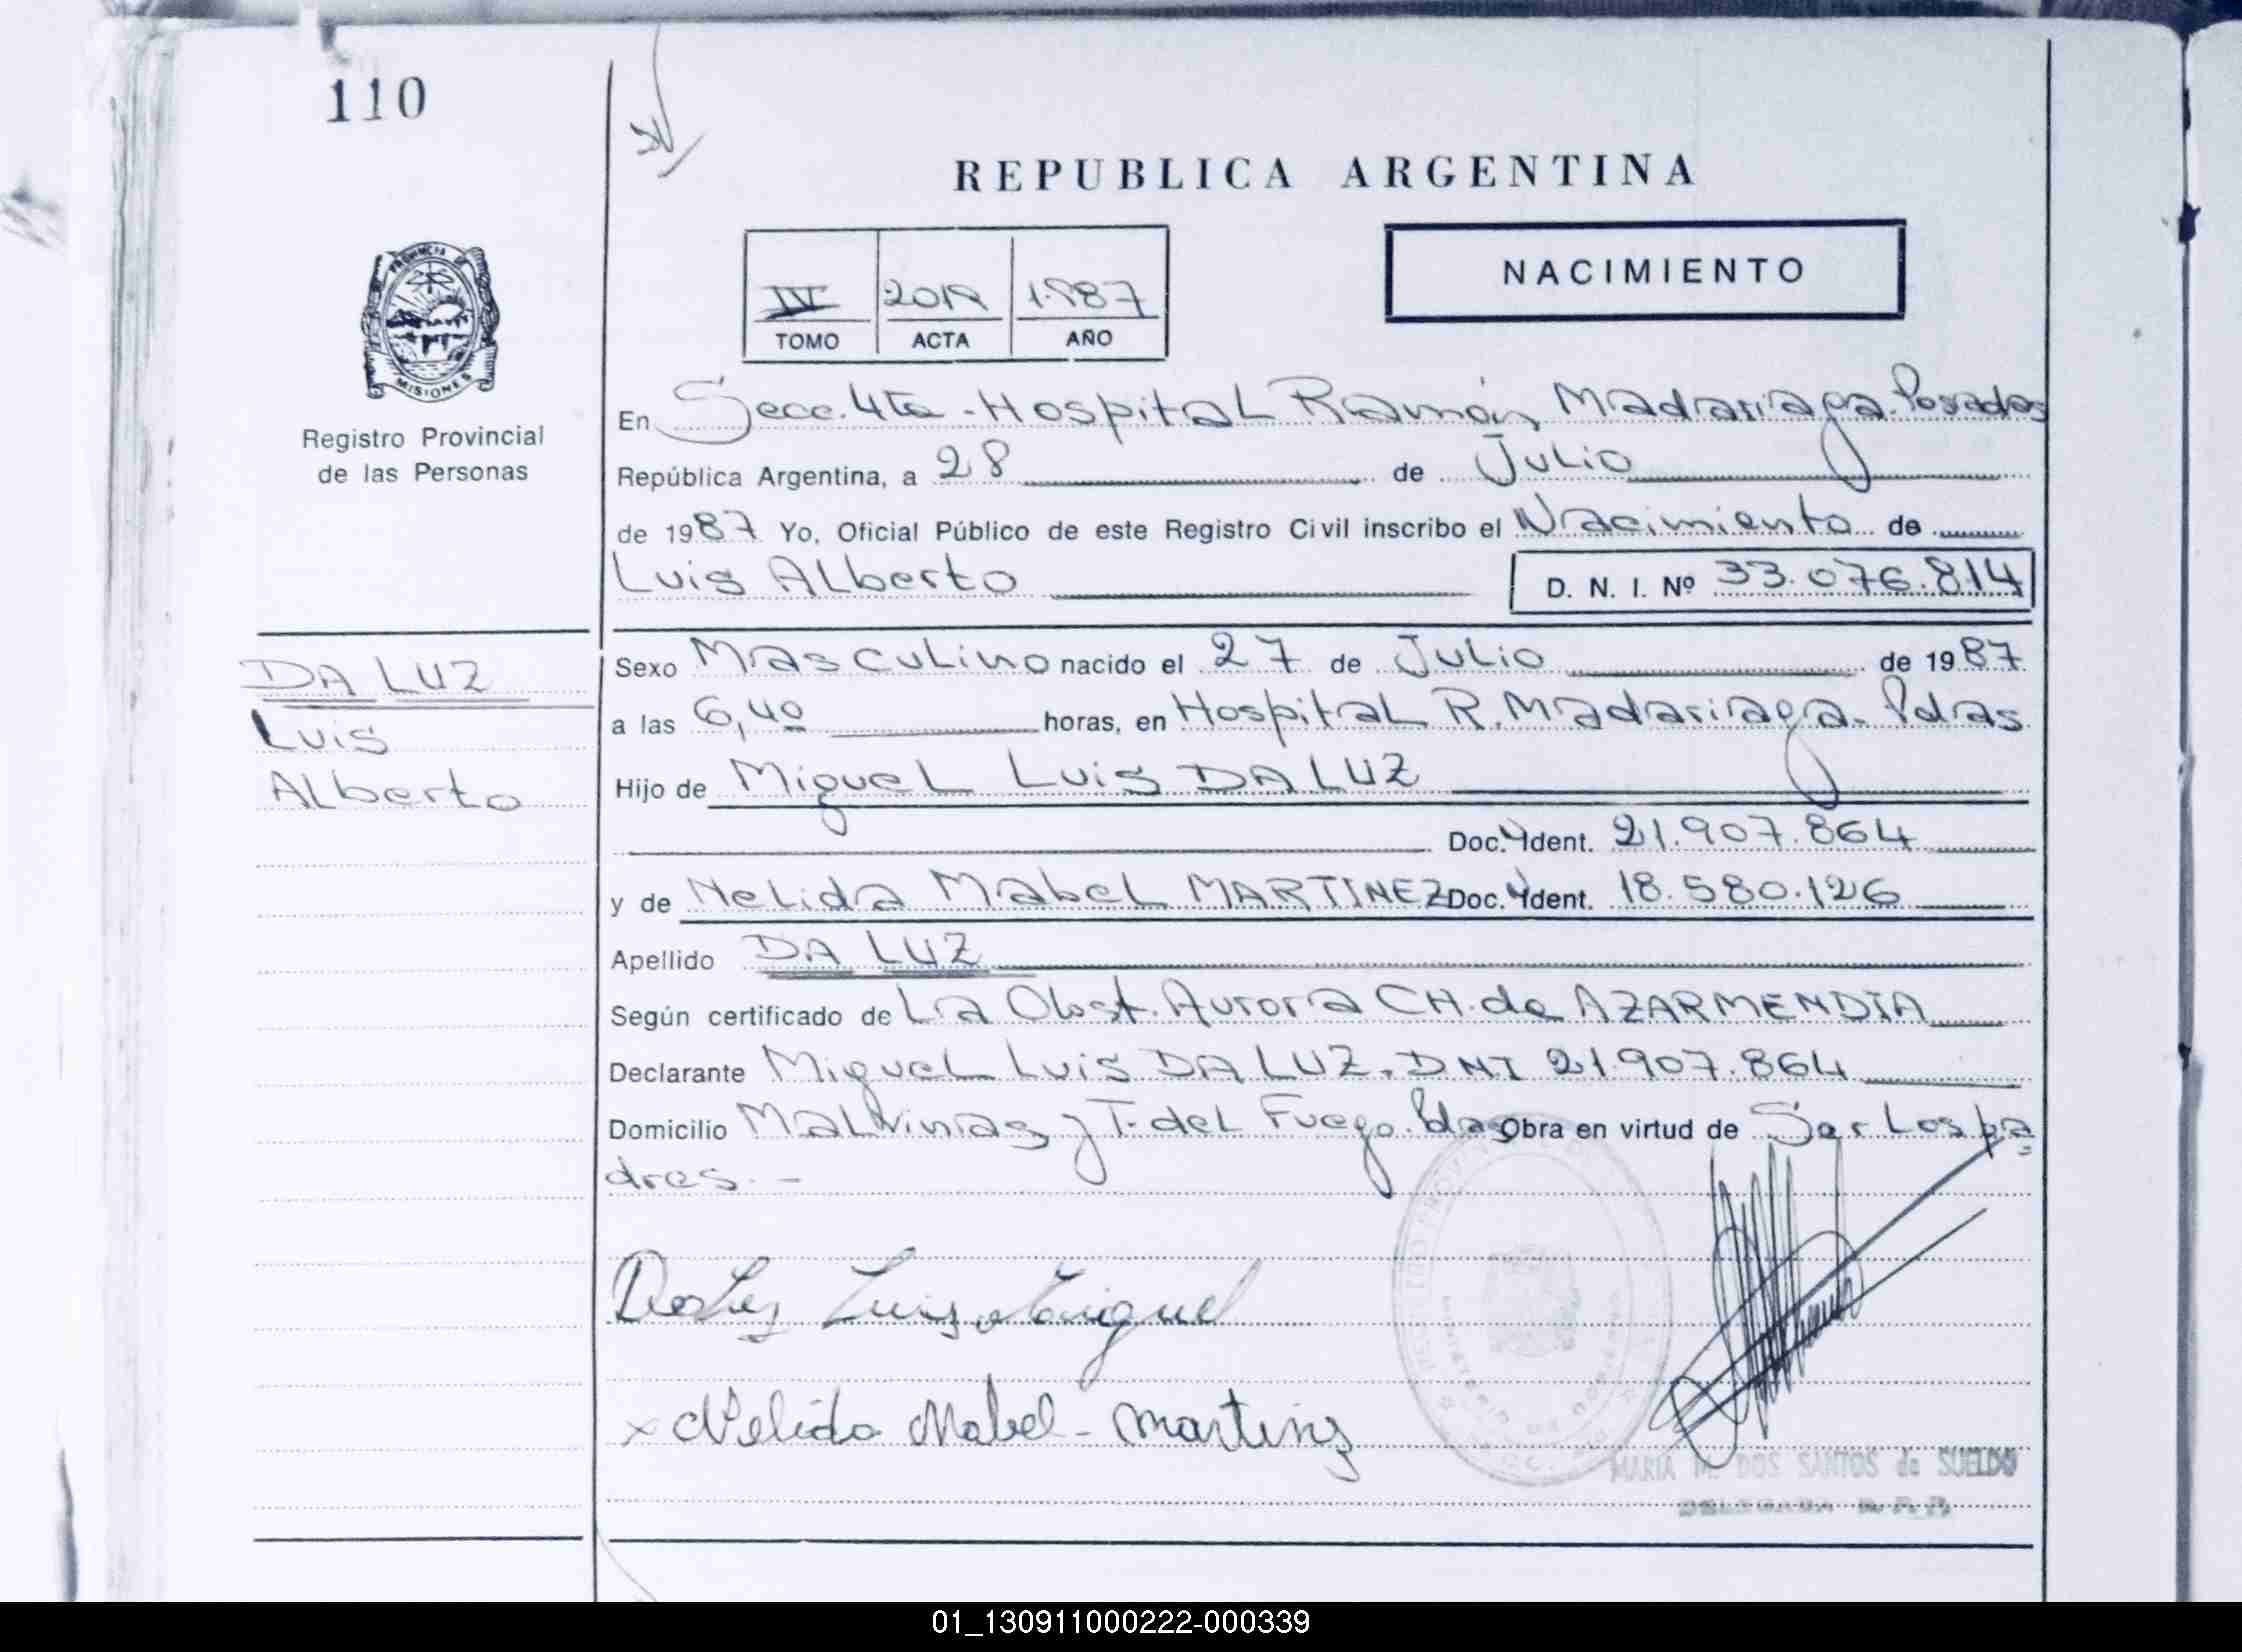 110
REPUBLICA ARGENTINA
IV 2019 1.987
TOMO ACTA AÑO
NACIMIENTO
PROVINCIA DE
MISIONES
Registro Provincial
de las Personas
En Secc. 4ta - Hospital Ramón Madariaga. Posadas
República Argentina, a 28 de Julio
de 1987 Yo, Oficial Público de este Registro Civil inscribo el Nacimiento de
Luis Alberto D. N. I. Nº 33.076.814
DA LUZ
Luis
Alberto
Sexo Masculino nacido el 27 de Julio de 1987
a las 6,40 horas, en Hospital R. Madariaga. Pdas
Hijo de Miguel Luis DA LUZ
Doc. Ident. 21.907.864
y de Nelida Mabel MARTINEZ Doc. Ident. 18.580.126
Apellido DA LUZ
Según certificado de La Obst. Aurora CH. de AZARMENDIA
Declarante Miguel Luis DA LUZ. DNI 21.907.864
Domicilio Malvinas y T. del Fuego. Pdas Obra en virtud de Ser Los pa
dres. -
Luis Miguel
x Nelida Mabel - Martinz
MARIA M. DOS SANTOS de SUELDO
DELEGADA R. P. P.
01_130911000222-000339